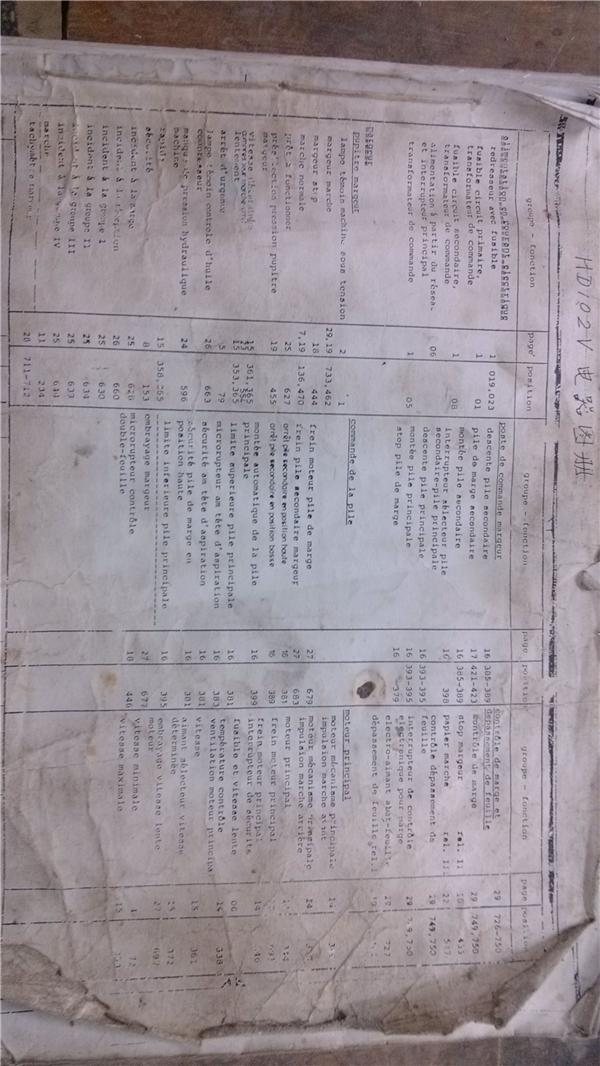 HD102V电路图册
groupe - fonction
page
position
redresseur avec fusible
1
019,023
fusible circuit primaire,
transformateur de commande
1
01
fusible circuit secondaire,
transformateur de commande
1
08
alimentation à partir du réseau
et interrupteur principal
06
transformateur de commande
1
05
pupitre margeur
lampe témoin machine sous tension
2
1
margeur marche
29,19
733,462
margeur stop
18
444
marche normale
7,19
136,470
prêt à fonctionner
25
627
présélection pression pupitre
margeur
19
455
lentement
15
353,365
arrêt d'urgence
5
79
lampe témoin controle d'huile
compresseur
26
663
manque de pression hydraulique
machine
24
596
15
358,365
sécurité
8
153
incident à la marge
25
628
26
660
incident à la groupe I
25
630
incident à la groupe II
25
634
incident à la groupe III
25
633
25
marche
11
234
28
711-712
groupe - fonction
page
position
poste de commande margeur
descente pile secondaire
16
385-389
pile de marge secondaire
17
421-423
montée pile secondaire
16
385-389
interrupteur sélecteur pile
secondaire-pile principale
16
398
descente pile principale
16
393-395
montée pile principale
16
393-395
stop pile de marge
16
379
commande de la pile
frein moteur pile de marge
27
679
frein pile secondaire margeur
27
683
arrêt pile secondaire en position haute
16
381
arrêt pile secondaire en position basse
16
389
montée automatique de la pile
principale
16
399
limite supérieure pile principale
16
381
microrupteur am tête d'aspiration
16
383
sécurité am tête d'aspiration
16
381
sécurité pile de marge en
position haute
16
381
limite inférieure pile principale
16
395
embrayage margeur
27
677
microrupteur contrôle
double-feuille
18
446
groupe - fonction
page
position
contrôle de marge et
dépassement de feuille
29
726-750
contrôle de marge
29
749,750
stop margeur rel. II
18
433
papier marche rel. II
contrôle dépassement de
feuille
29
749,750
interrupteur de contrôle
électronique pour marge
29
electro-aimant abat-feuille
29
727
dépassement de feuille rel.I
moteur principal
moteur mécanisme principale
impulsion marche avant
14
moteur mécanisme principale
impulsion marche arrière
14
moteur principal
frein moteur principal
frein moteur principal
interrupteur de sécurité
14
fusible et vitesse lente
06
température contrôle
ventilation moteur principal
14
338
vitesse
15
361
aimant sélecteur vitesse
déterminée
15
372
embrayage vitesse lente
moteur
27
687
vitesse minimale
72
vitesse maximale
15